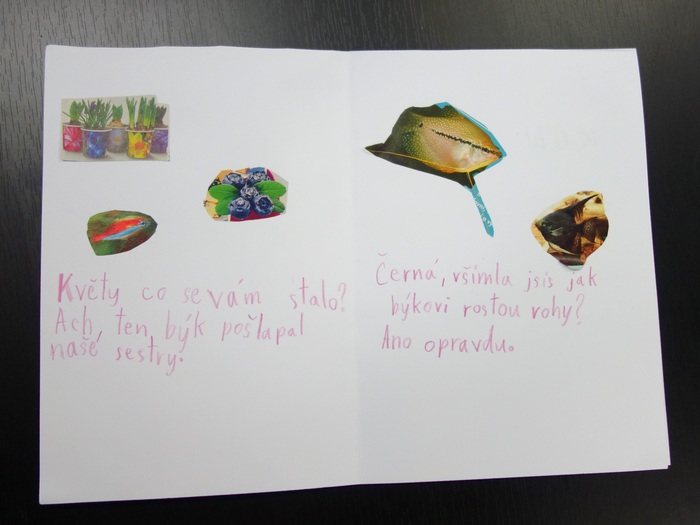 Květy co se vám stalo?
Ach, ten, býk pošlapal
naše sestry.
Černá, všimla jsis jak
býkovi rostou rohy?
Ano opravdu.